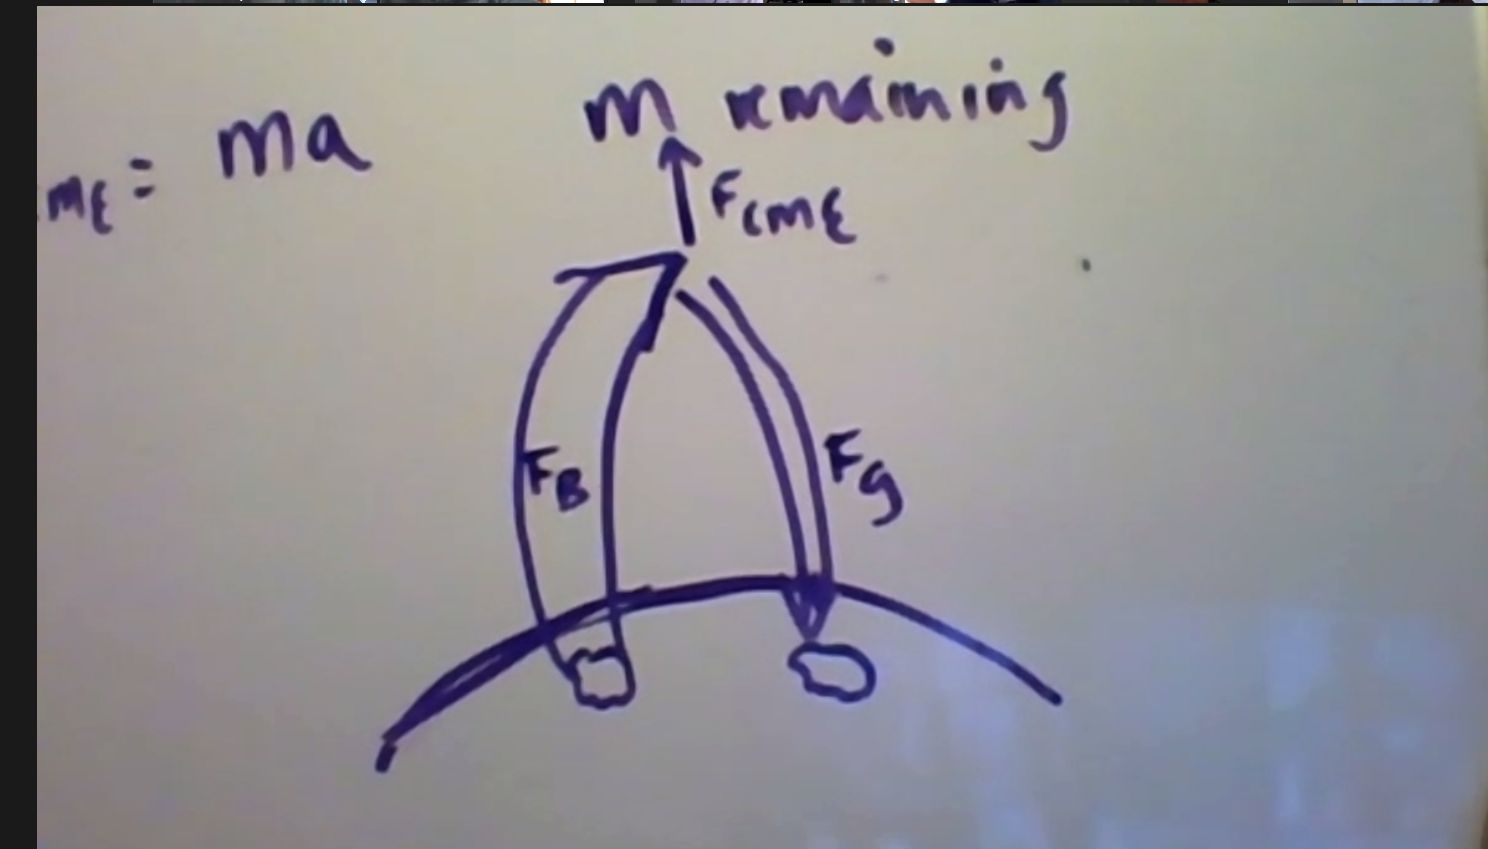 ME = ma
m remaining
FCME
FB
Fg